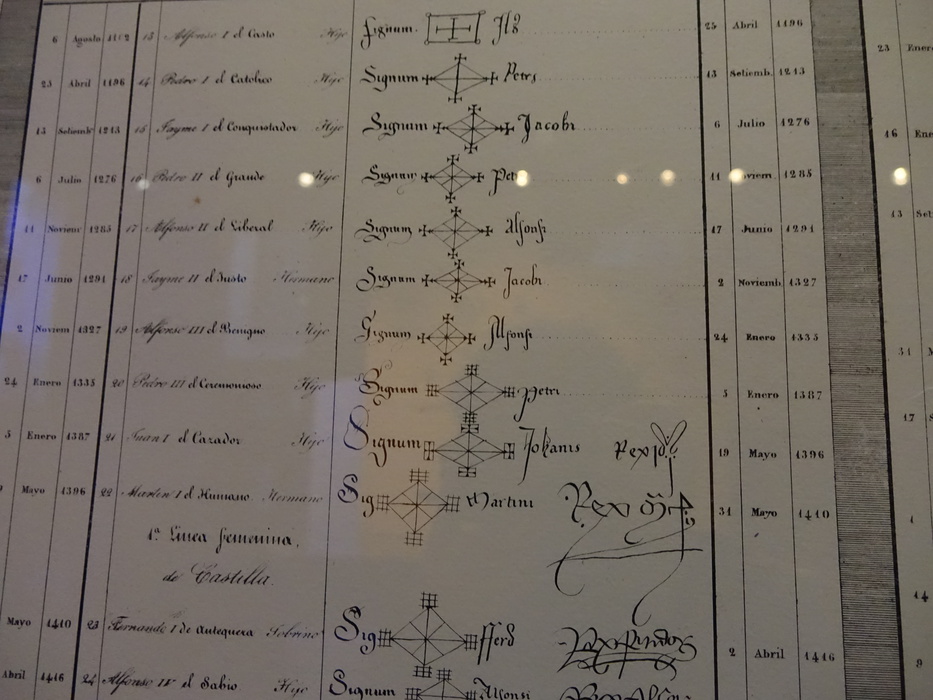 6 Agosto 1162 13 Alfonso I el Casto Hijo Signum Ils 25 Abril 1196
25 Abril 1196 14 Pedro I el Catolico Hijo Signum Petri 13 Setiemb. 1213
13 Setiemb 1213 15 Jayme I el Conquistador Hijo Signum Jacobi 6 Julio 1276
6 Julio 1276 16 Pedro II el Grande Hijo Signum 11 1285
11 Noviem 1285 17 Alfonso II el Liberal Hijo Signum Alfonsi 17 Junio 1291
17 Junio 1291 18 Jayme II el Justo Hermano Signum Jacobi 2 Noviemb 1327
2 Noviem 1327 19 Alfonso III el Benigno Hijo Signum Alfonsi 24 Enero 1335
24 Enero 1335 20 Pedro III el Ceremonioso Hijo Signum Petri 5 Enero 1387
5 Enero 1387 21 Juan I el Cazador Hijo Signum Johanis Rex 19 Mayo 1396
Mayo 1396 22 Martin I el Humano Hermano Sig Martini Rex 31 Mayo 1410
1ª Linea femenina,
de Castilla.
Mayo 1410 23 Fernando I de Antequera Sobrino Sig fferd 2 Abril 1416
Abril 1416 24 Alfonso IV el Sabio Hijo Signum Alfonsi
23 Enero
16
13
31
17
1
14
9